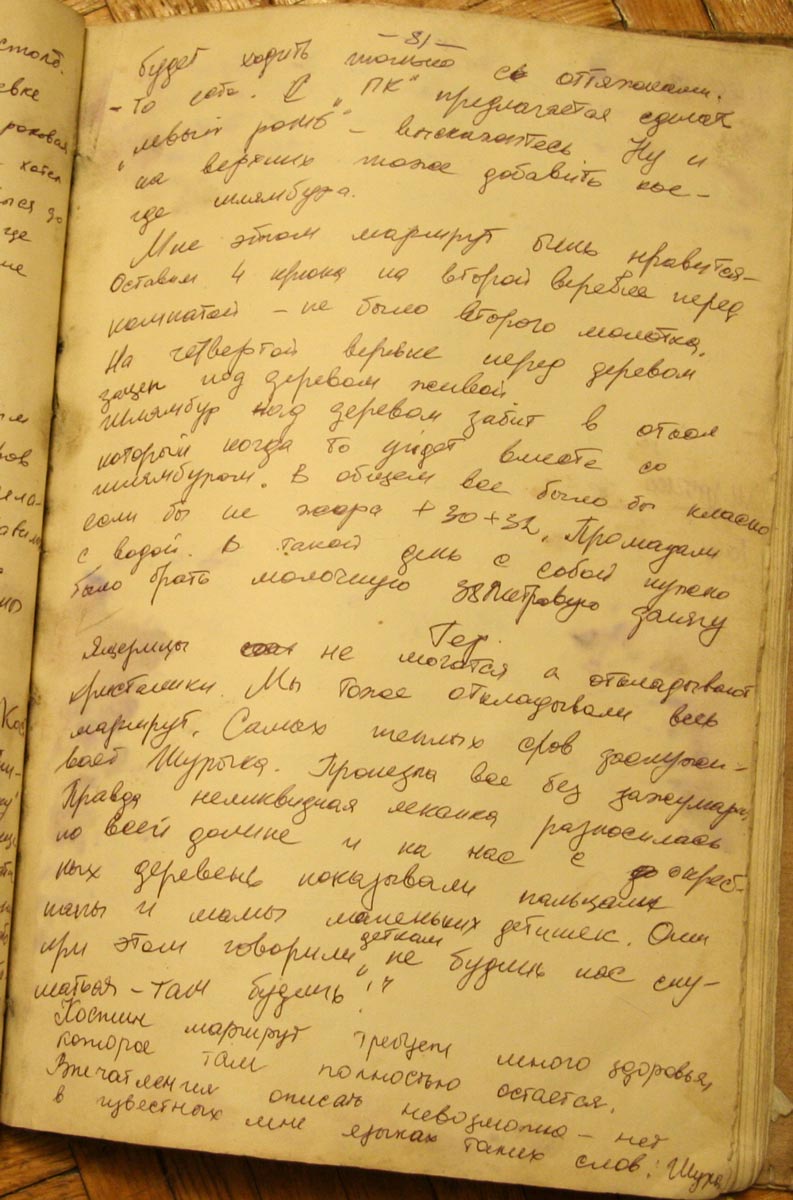 столб.
евке
роковая
хотел
где
- 81 -
будет ходить только с оттяжками.
- то сото. С "ПК" предлагается сделать
"левый ромб" - выскажитесь Ну и
на верхних тоже добавить кое-
где шлямбура.
Мне этот маршрут очень нравится -
Оставил 4 крюка на второй веревке перед
комнатой - не было второго молотка.
На четвертой веревке перед деревом
зацеп под деревом живой
Шлямбур над деревом забит в откол
который когда то уйдет вместе со
шлямбуром. В общем все было бы классно
если бы не жара +30+32. Промадали
с водой. В такой день с собой нужно
было брать молочную 38 литровую флягу
Гер.
Ящерицы не мочатся а откладывают
кристалики. Мы тоже откладывали весь
маршрут. Самых теплых слов заслужи-
вает Шурыка. Прошла все без зажумара,
Правда неликвидная лексика разносилась
по всей долине и на нас с окрест-
ных деревень показывали пальцами
папы и мамы маленьких детишек. Они
при этом говорили деткам "не будишь нас слу-
шаться - там будишь"!
Костин маршрут требует много здоровья,
которое там полностью остается.
Впечатления описать невозможно - нет
в известных мне языках таких слов! Шура